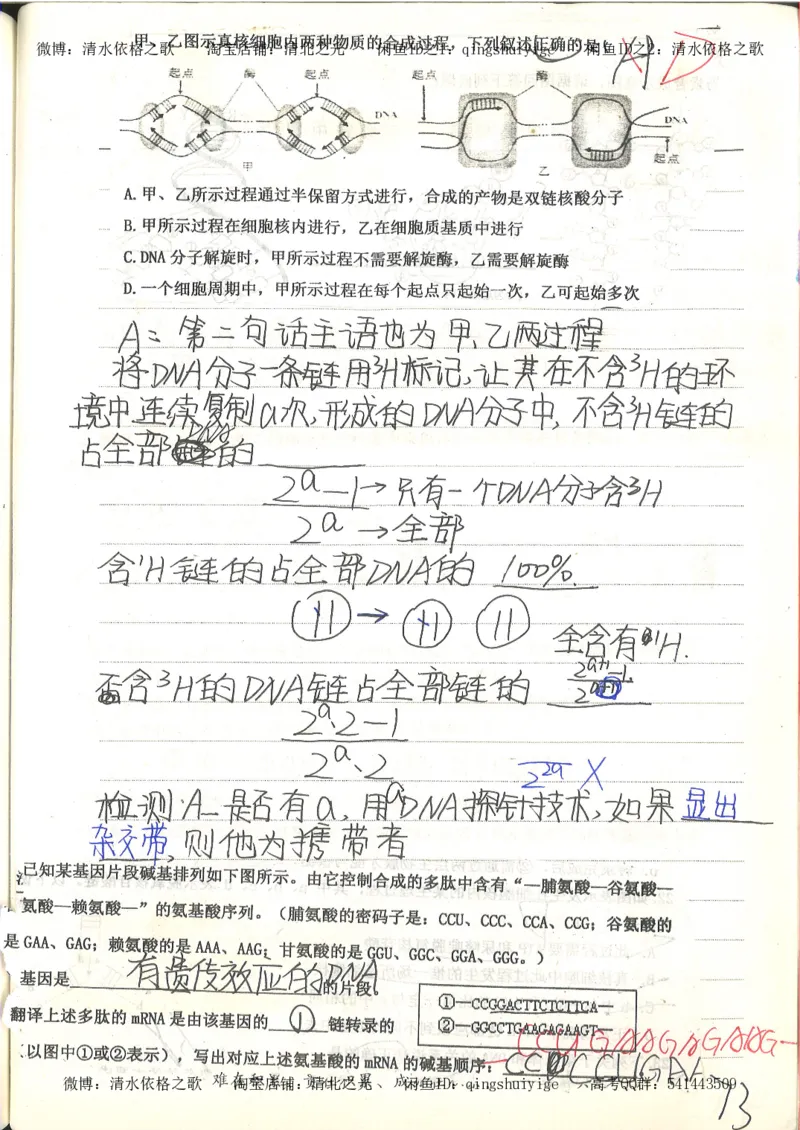 甲、乙图示真核细胞内两种物质的合成过程，下列叙述正确的是(
A D
微博：清水依格之歌 淘宝店铺：清北之光 闲鱼ID之1：qingshuiyige 闲鱼ID之2：清水依格之歌
起点 酶 起点 起点 酶
DNA DNA
起点
甲 乙
A.甲、乙所示过程通过半保留方式进行，合成的产物是双链核酸分子
B.甲所示过程在细胞核内进行，乙在细胞质基质中进行
C.DNA 分子解旋时，甲所示过程不需要解旋酶，乙需要解旋酶
D.一个细胞周期中，甲所示过程在每个起点只起始一次，乙可起始多次
A：第二句话主语也为甲、乙两过程
将DNA分子一条链用³H标记，让其在不含³H的环
境中连续复制a次，形成的DNA分子中，不含³H链的
占全部DNA的
2^a-1→只有一个DNA分子含³H
2^a→全部
含¹H链的占全部DNA的 100%.
全含有¹H.
否含³H的DNA链占全部链的 2^(a+1)-1
2^(a+1)
2^a·2-1
2^a·2
2^2a X
检测A_是否有a，用a DNA探针技术，如果显出
杂交带，则他为携带者
已知某基因片段碱基排列如下图所示。由它控制合成的多肽中含有“—脯氨酸—谷氨酸—
氨酸—赖氨酸—”的氨基酸序列。（脯氨酸的密码子是：CCU、CCC、CCA、CCG；谷氨酸的
是 GAA、GAG；赖氨酸的是 AAA、AAG；甘氨酸的是 GGU、GGC、GGA、GGG。）
基因是有遗传效应的DNA的片段。
①—CCGGACTTCTCTTCA—
②—GGCCTGAAGAGAAGT—
翻译上述多肽的 mRNA 是由该基因的①链转录的
CCUGAAGAGAAG—
（以图中①或②表示），写出对应上述氨基酸的 mRNA 的碱基顺序：CCUGAA
微博：清水依格之歌 淘宝店铺：清北之光 闲鱼ID：qingshuiyige 高考QQ群：541443509
13